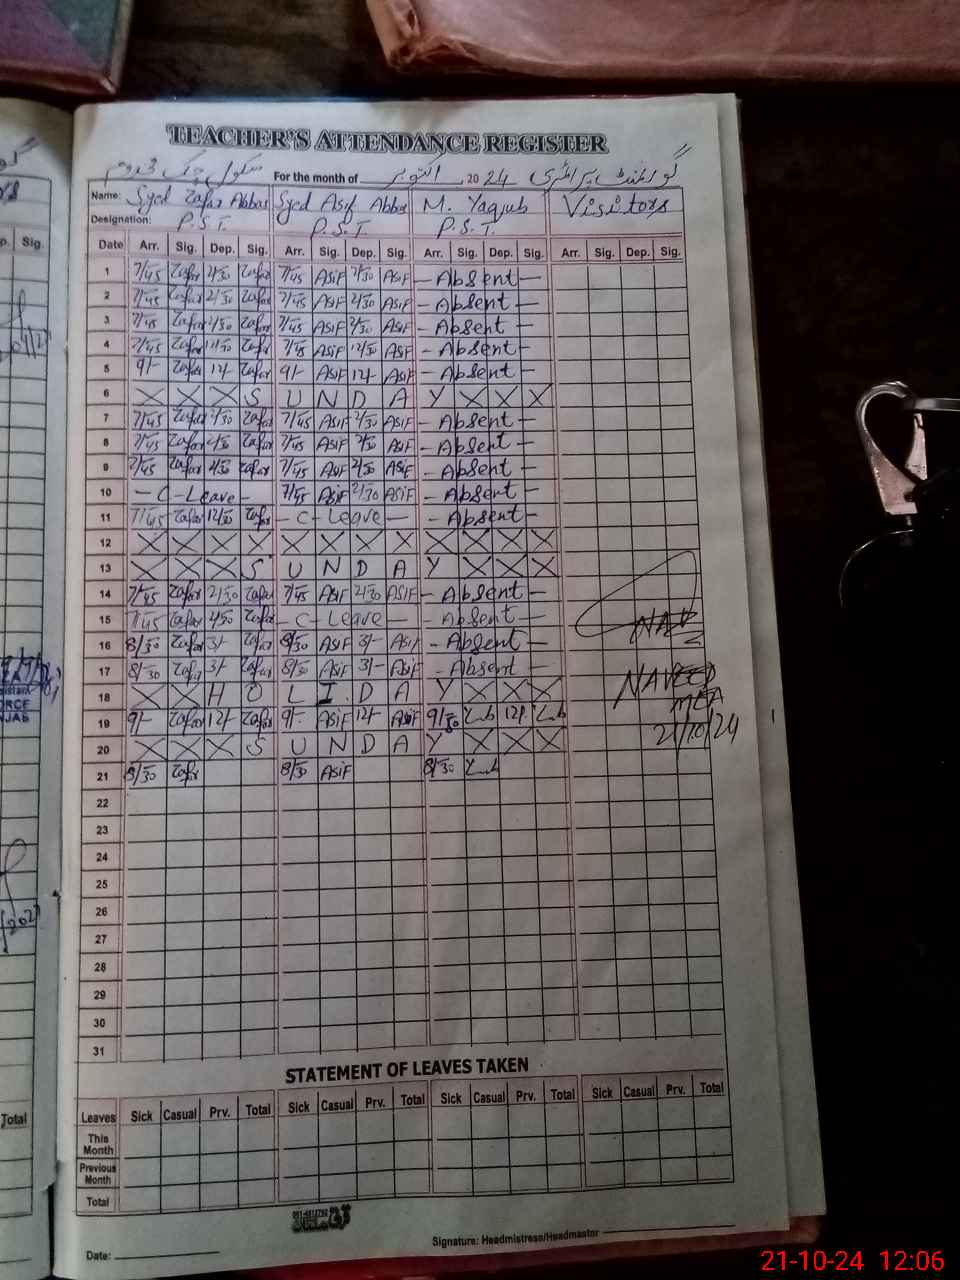 TEACHER'S ATTENDANCE REGISTER
گورنمنٹ پرائمری سکول چک For the month of اکتوبر 2024
Name: Syed Zafar Abbas Syed Asif Abbas M. Yaqub Visitors
Designation: P.S.T. P.S.T. P.S.T.
Date Arr. Sig. Dep. Sig. Arr. Sig. Dep. Sig. Arr. Sig. Dep. Sig. Arr. Sig. Dep. Sig.
1 7/45 Zafar 2/30 Zafar 7/45 Asif 2/30 Asif - Absent -
2 7/45 Zafar 2/30 Zafar 7/45 Asif 2/30 Asif - Absent -
3 7/45 Zafar 2/30 Zafar 7/45 Asif 2/30 Asif - Absent -
4 7/45 Zafar Zafar 7/45 Asif 12/30 Asif - Absent -
5 9/- Zafar 12/- Zafar 9/- Asif 12/- Asif - Absent -
6 X X X S U N D A Y X X X
7 7/45 Zafar 2/30 Zafar 7/45 Asif 2/30 Asif - Absent -
8 7/45 Zafar 2/30 Zafar 7/45 Asif 2/30 Asif - Absent -
9 7/45 Zafar 2/30 Zafar 7/45 Asif 2/30 Asif - Absent -
10 - C-Leave - 7/45 Asif 2/30 Asif - Absent -
11 7/45 Zafar 12/30 Zafar - C-Leave - - Absent -
12 X X X X X X X X X X X X
13 X X X S U N D A Y X X X
14 7/45 Zafar 2/30 Zafar 7/45 Asif 2/30 Asif - Absent -
15 7/45 Zafar Zafar - C-Leave - - Absent -
16 8/30 Zafar 3/- Zafar 8/30 Asif 3/- Asif - Absent -
17 8/30 Zafar 3/- Zafar 8/30 Asif 3/- Asif - Absent -
18 X X H O L I D A Y X X X
19 9/- Zafar 12/- Zafar 9/- Asif 12/- Asif 12/-
20 X X X S U N D A Y X X X
21 8/30 Zafar 8/30 Asif 8/30
NAVEED
MEA
21/10/24
22
23
24
25
26
27
28
29
30
31
STATEMENT OF LEAVES TAKEN
Leaves Sick Casual Prv. Total Sick Casual Prv. Total Sick Casual Prv. Total Sick Casual Prv. Total
This Month
Previous Month
Total
Date:
Signature: Headmistress/Headmaster
p. Sig.
Total
21-10-24 12:06